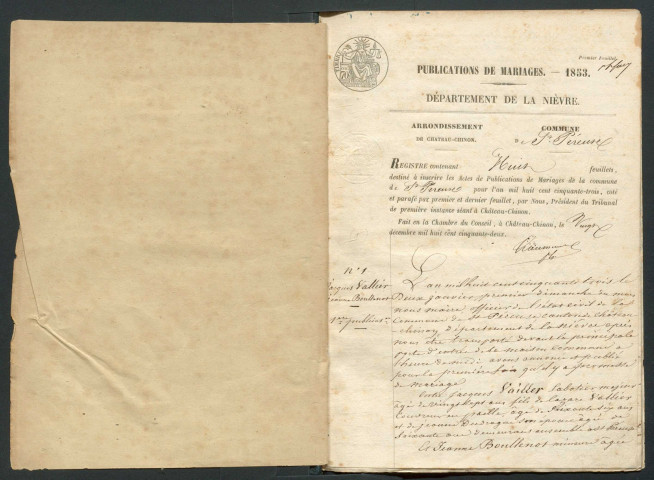 Premier Feuillet
PUBLICATIONS DE MARIAGES. — 1853.
DÉPARTEMENT DE LA NIÈVRE.
ARRONDISSEMENT
DE CHATEAU-CHINON.
COMMUNE
de St. Péreuse
REGISTRE contenant huit feuillets,
destiné à inscrire les Actes de Publications de Mariages de la commune
de St. Péreuse pour l'an mil huit cent cinquante-trois, coté
et parafé par premier et dernier feuillet, par Nous, Président du Tribunal
de première instance séant à Château-Chinon.
Fait en la Chambre du Conseil, à Château-Chinon, le vingt
décembre mil huit cent cinquante-deux.
N° 1
Jacques Vallier
Jeanne Boullenot
1ère publicat.
L'an mil huit cent cinquante trois le
Deux janvier premier dimanche du mois
nous maire officier de l'état civil de la
Commune de St. Péreuse canton de château
chinon, département de la Nièvre après
nous être transporté devant la principale
porte d'entrée de la maison commune à
l'heure de midi avons annoncé et publié
pour la première fois qu'il y a promesse
de mariage
Entre Jacques Vallier Sabotier majeur
âgé de vingt sept ans fils de Lazare Vallier
Couvreur en paille, âgé de soixante six ans
et de Jeanne son épouse âgée de
soixante ans demeurant ensemble
Et Jeanne Boullenot mineure âgée